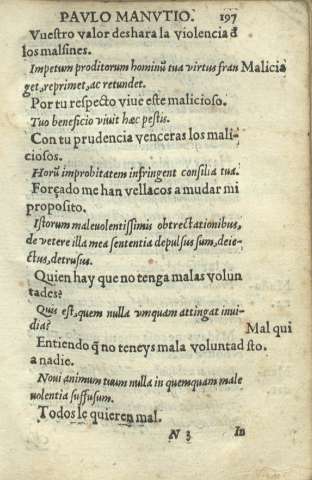 PAVLO MANVTIO. 197
Vuestro valor deshara la violencia đ
los malsines.
Impetum proditorum hominū tua virtus fran Malicia
get, reprimet, ac retundet.
Por tu respecto viue este malicioso.
Tuo beneficio viuit hæc pestis.
Con tu prudencia venceras los mali-
ciosos.
Horū improbitatem infringent consilia tua.
Forçado me han vellacos a mudar mi
proposito.
Istorum maleuolentissimis obtrectationibus,
de vetere illa mea sententia depulsus sum, deie-
ctus, detrusus.
Quien hay que no tenga malas volun
tades?
Quis est, quem nulla vmquam attingat inui-
dia? Mal qui
Entiendo q̄ no teneys mala voluntad sto.
a nadie.
Noui animum tuum nulla in quemquam male
uolentia suffusum.
Todos le quieren mal.
N 3 In